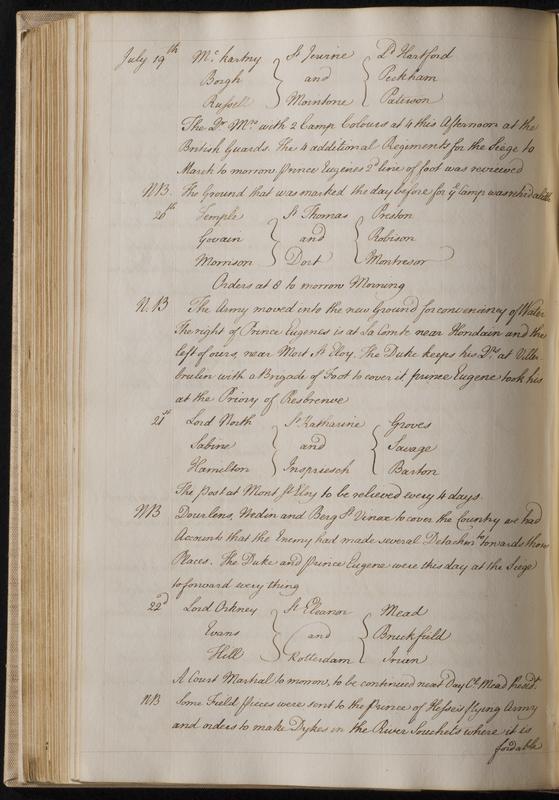 July 19th McKartny St Jevrine Ld Hartford
Borgh and Peckham
Russell Morntone Paterson
The Qr Mrs with 2 Camp Colours at 4 this Afternoon at the
British Guards. The 4 additional Regiments for the Siege to
March to morrow, prince Eugenes 2d line of foot was reviewed
NB. The Ground that was marked the day before for ye Camp was
20th Temple St Thomas Preston
Govain and Robison
Morrison Dort Montresor
Orders at 8 to morrow Morning
N.B The Army moved into the new Ground for conveniancy of Water
The right of Prince Eugenes is at La Comte near Hondain and the
left of ours, near Mort St Eloy. The Duke keeps his Qrs at Viller
brulin with a Brigade of Foot to cover it, prince Eugene took his
at the Priory of Resbrenve
21st Lord North St Katharine Groves
Sabine and Savage
Hamelton Inspruesch Barton
The post at Mont St Eloy to be relieved every 4 days.
NB Dourlens, Hedin and Berg St Vinox to cover the Country we had
Accounts that the Enemy had made several Detachmts towards those
Places. The Duke and prince Eugene were this day at the Siege
to forward every thing
22d Lord Orkney St Eleanor Mead
Evans and Bruckfield
Hell Rotterdam Irvan
A Court Martial to morow, to be continued next Day Cl. Mead Presdt.
NB Some Field pieces were sent to the Prince of Hesse's flying Army
and orders to make Dykes in the River Souchets where it is
fordable